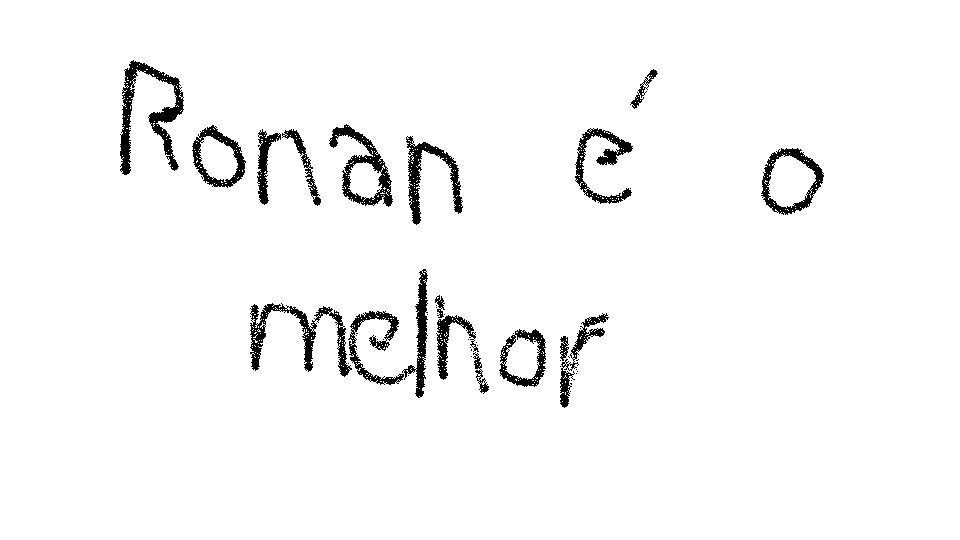 Ronan é o
melhor